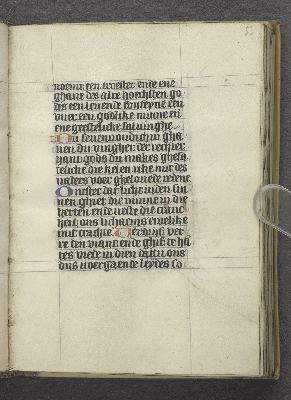 noemt een troester ende ene
ghaue des alre hoechsten go
des een leuende fonteyne een
vuer een godlike minne en
ene gheestelike saluinghe
Du seuenvoudich in gha
uen du vingher der rechter
hant gods du makes ghesa
telike die kelen rike mit des
vaders voer gheloefde redene
Ontstec dat licht inden sin
nen ghiet die minne in die
herten ende veste die cranc
heit ons lichaems ewelike
mit crachte Verdrijf ver
re den viant ende ghif te ha
tes vrede in dien dattu ons
dus voergaende leydes so